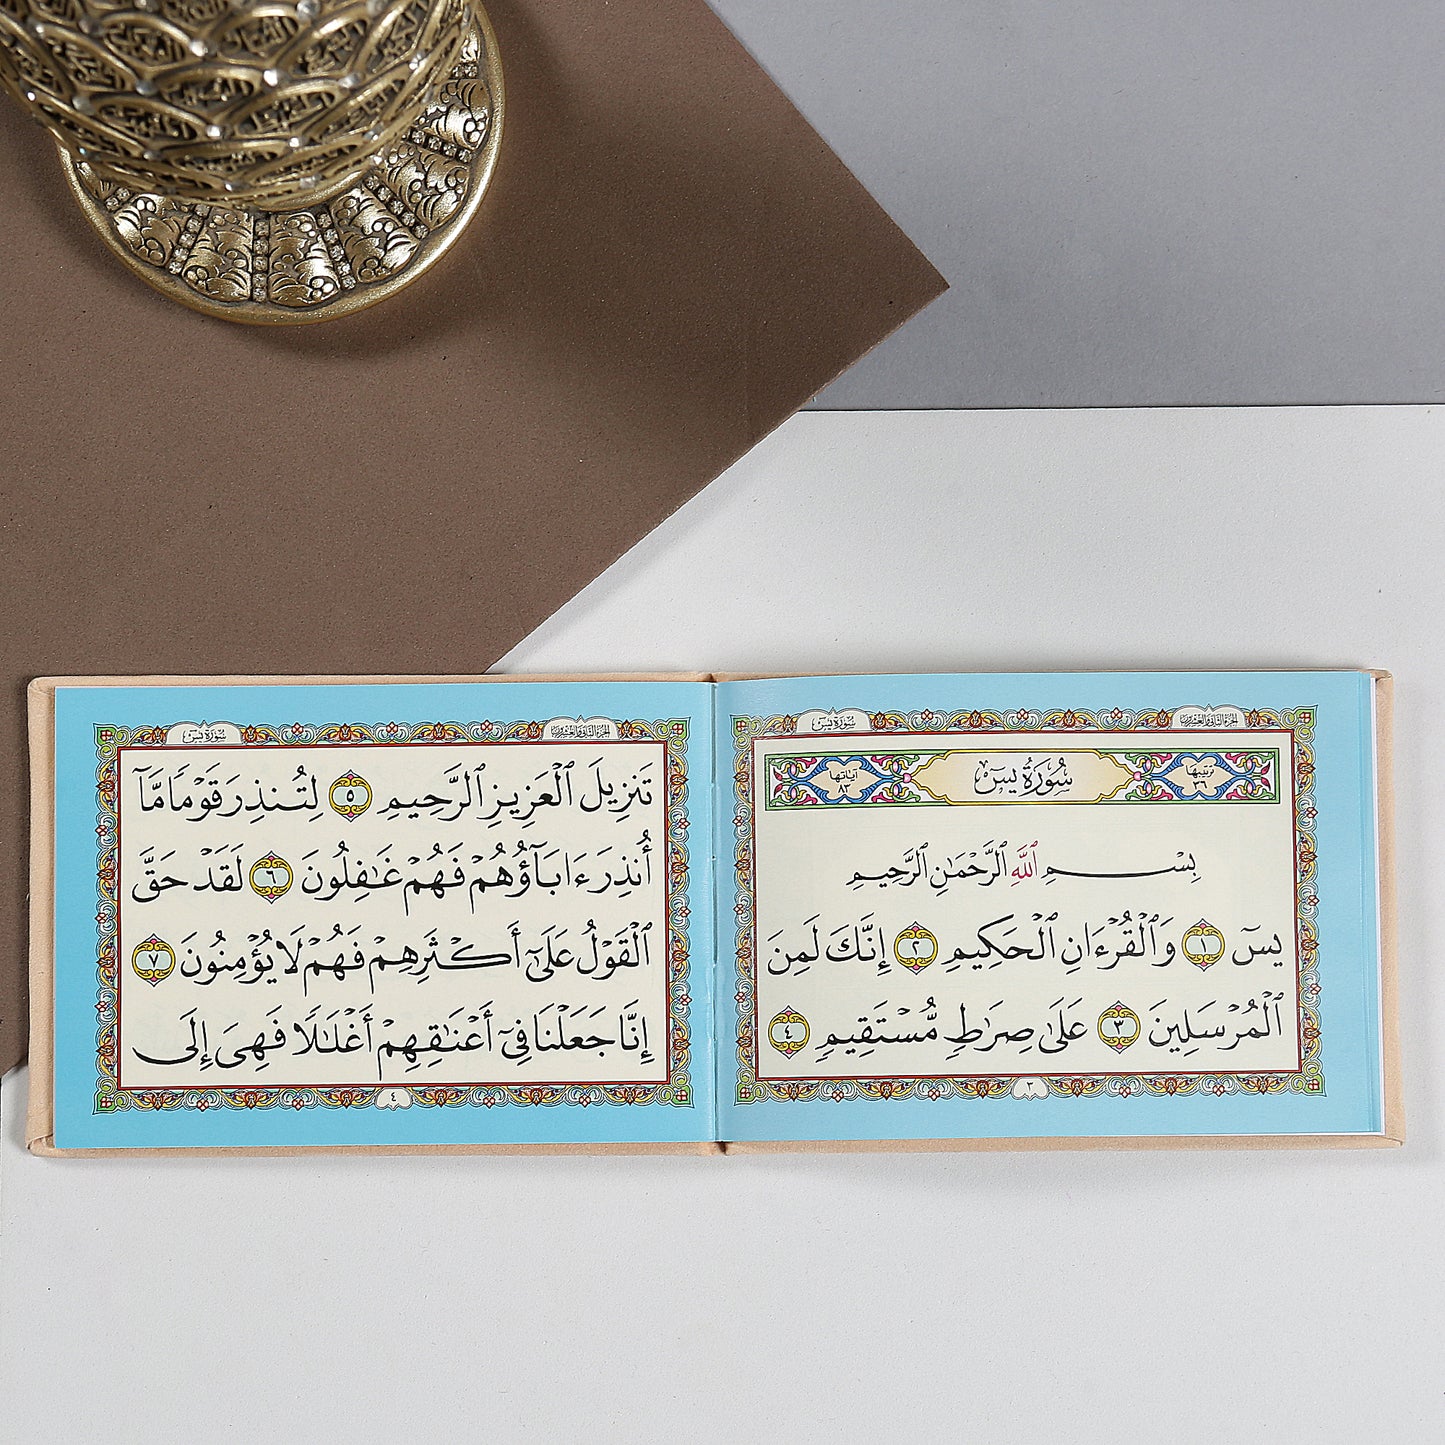 سُورَةُ يسٓ
الجزء الثاني والعشرون
ترتيبها
٣٦
سُورَةُ يسٓ
آياتها
٨٣
بِسْمِ اللَّهِ الرَّحْمَٰنِ الرَّحِيمِ
يسٓ ١ وَٱلْقُرْءَانِ ٱلْحَكِيمِ ٢ إِنَّكَ لَمِنَ
ٱلْمُرْسَلِينَ ٣ عَلَىٰ صِرَٰطٍ مُّسْتَقِيمٍ ٤
٣
سُورَةُ يسٓ
الجزء الثاني والعشرون
تَنزِيلَ ٱلْعَزِيزِ ٱلرَّحِيمِ ٥ لِتُنذِرَ قَوْمًا مَّآ
أُنذِرَ ءَابَآؤُهُمْ فَهُمْ غَٰفِلُونَ ٦ لَقَدْ حَقَّ
ٱلْقَوْلُ عَلَىٰٓ أَكْثَرِهِمْ فَهُمْ لَا يُؤْمِنُونَ ٧
إِنَّا جَعَلْنَا فِىٓ أَعْنَٰقِهِمْ أَغْلَٰلًا فَهِىَ إِلَى
٤